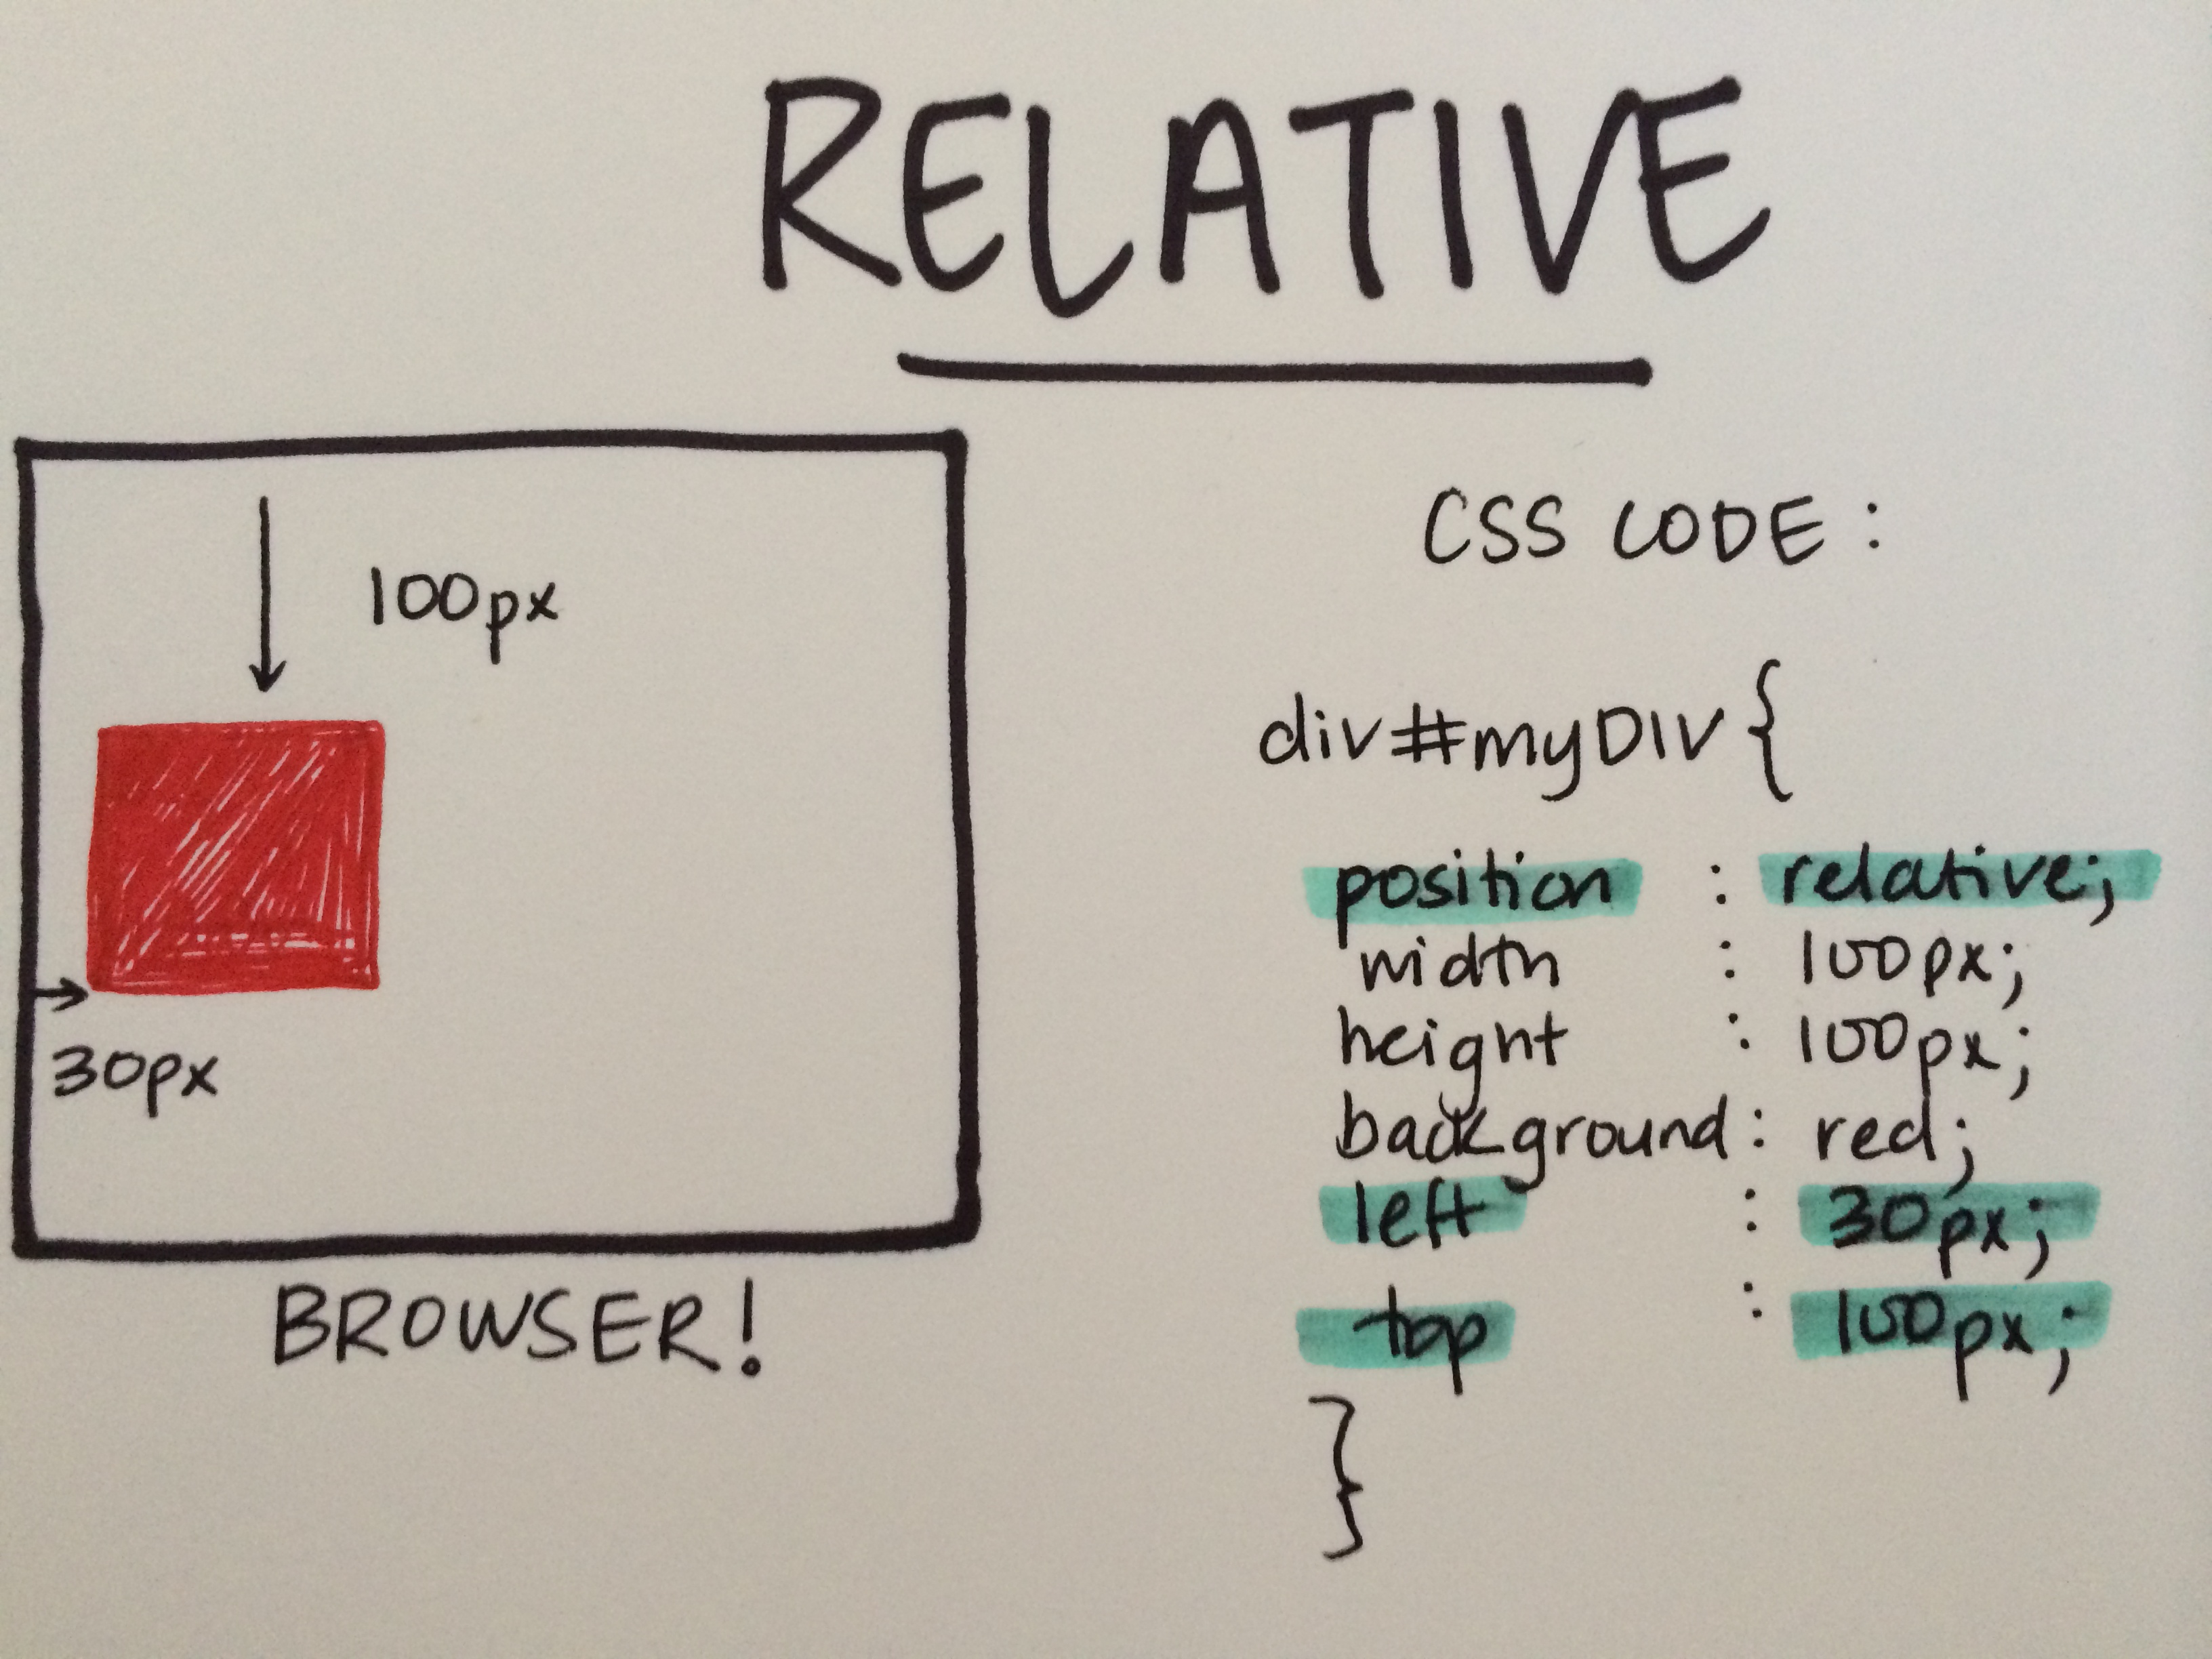 RELATIVE
100px
30px
BROWSER!
CSS CODE :
div#myDIV {
position : relative;
width : 100px;
height : 100px;
background : red;
left : 30px;
top : 100px;
}